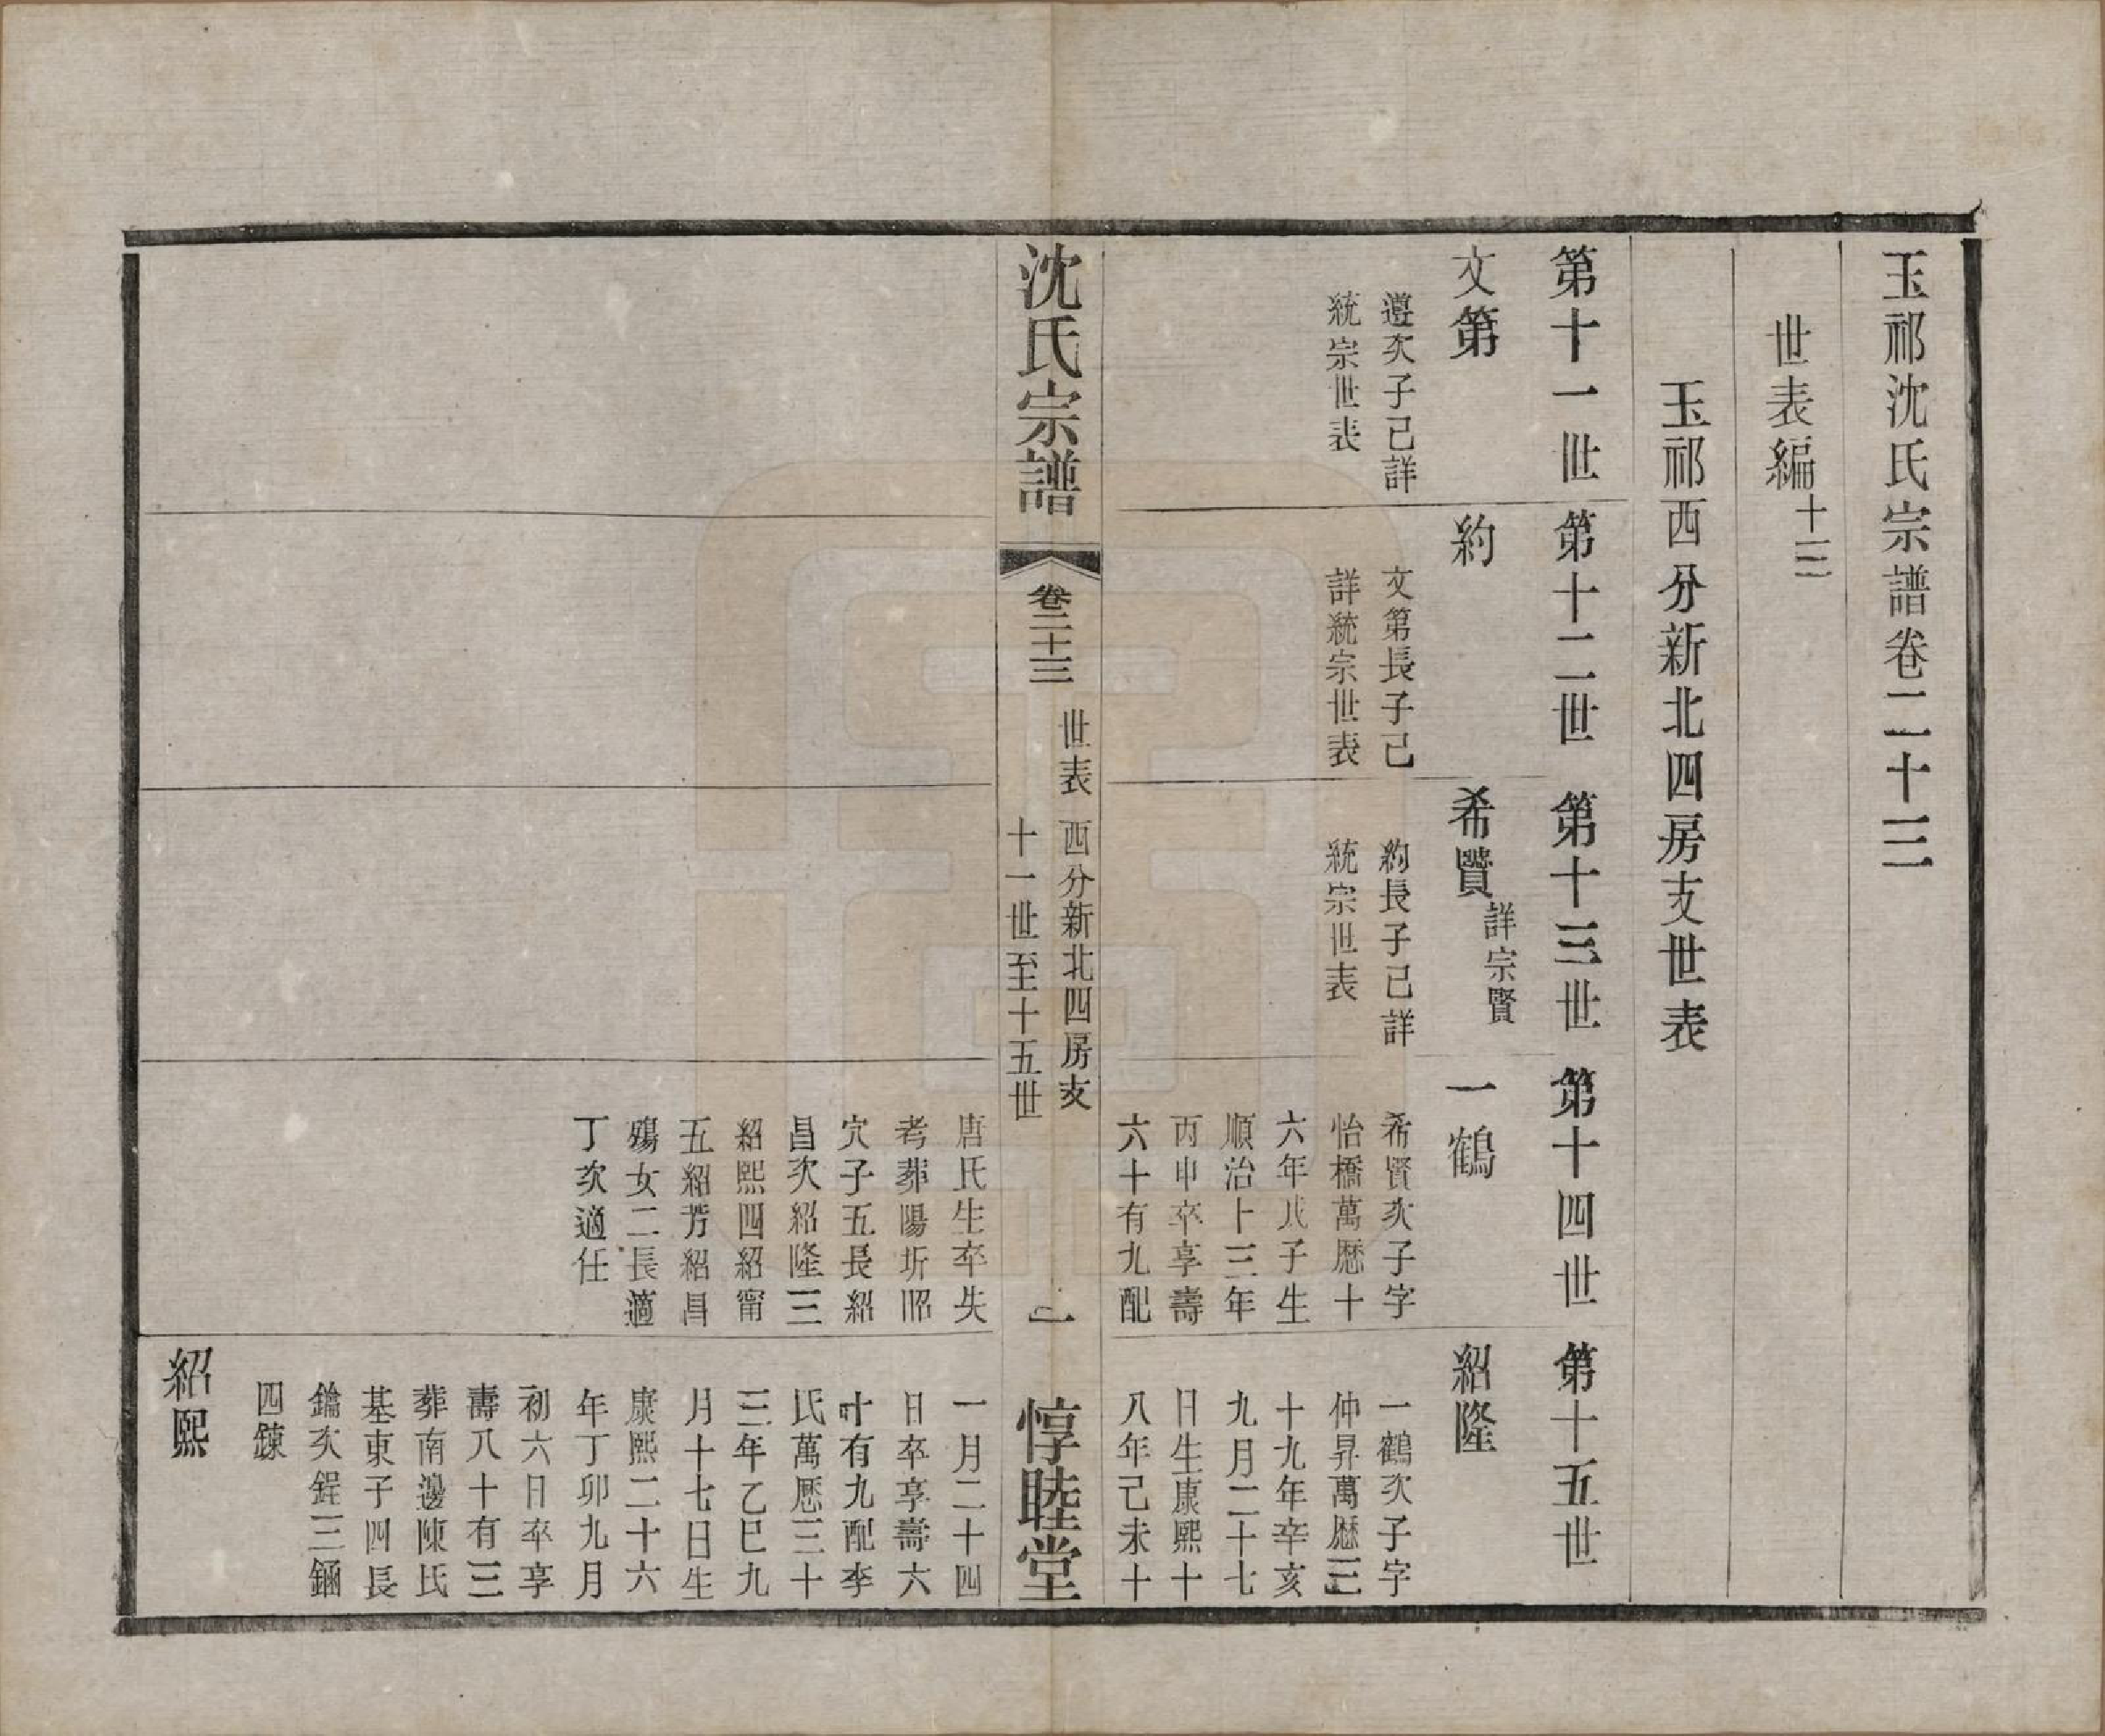 玉祁沈氏宗譜卷二十三
世表編十三
玉祁西分新北四房支世表
第十一世
第十二世
第十三世
第十四世
第十五世
文第
遵次子已詳
統宗世表
約
文第長子已
詳統宗世表
希賢詳宗賢
約長子已詳
統宗世表
一鶴
希賢次子字
怡橋萬厯十
六年戊子生
順治十三年
丙申卒享壽
六十有九配
唐氏生卒失
考葬陽圻昭
穴子五長紹
昌次紹隆三
紹熙四紹甯
五紹芳紹昌
殤女二長適
丁次適任
紹隆
一鶴次子字
仲昇萬厯三
十九年辛亥
九月二十七
日生康熙十
八年己未十
一月二十四
日卒享壽六
十有九配李
氏萬厯三十
三年乙巳九
月十七日生
康熙二十六
年丁卯九月
初六日卒享
壽八十有三
葬南邊陳氏
基東子四長
鑰次鋥三鏋
四鍊
紹熙
沈氏宗譜
卷二十三
世表
西分新北四房支
十一世至十五世
一
惇睦堂